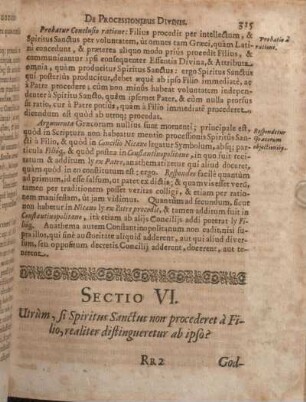 DE PROCESSIONIBUS DIVINIS. 315
Probatur Conclusio ratione: Filius procedit per intellectum, &
Spiritus Sanctus per voluntatem, ut omnes tam Græci, quam Lati-
ni concedunt, & præterea aliquo modo prius procedit Filius, &
communicantur ipsi consequenter Essentia Divina, & Attributa
omnia, quàm producitur Spiritus Sanctus: ergo Spiritus Sanctus
qui posteriùs producitur, debet æquè ab ipso Filio immediatè, ac
à Patre procedere;
deat à Spiritu Sancto, quàm ipsemet Pater, & cùm nulla prorsus
sit ratio, cur à Patre potiùs, quàm à Filio immediatè procedere
dicendus sit quàm ab utroq; procedat.
Argumenta Græcorum nullius sunt momenti; principale est,
quòd in Scripturis non habeatur mentio processionis Spiritus San-
cti à Filio, & in Concilio Nicæno legatur Symbolum, absq; parti-
cula Filioq, & quòd postea in Constantinopolitano, in quo fuit reci-
tatum & additum ly ex Patre, anathematizetur qui aliud docet,
quàm quòd in eo constitutum est: ergo. Respondeo facilè quantùm
ad primum, id esse falsum, ut patet ex dictis; & quamvis esset verũ,
tamen per traditionem posset veritas colligi, & etiam per ratio-
nem manifestam, ut jam vidimus. Quantùm ad secundum, sicut
non habetur in Nicæno ly ex Patre procedit, & tamen additum fuit in
Constantinopolitano, ità etiam ab alijs Concilijs addi poterat ly Fi-
lioq;. Anathema autem Constantinopolitanum non raditur nisi su-
per illos, qui sinè auctoritate aliquid adderent, aut qui aliud diver-
sum, seu oppositum decretis Concilij adderent, docerent, aut te-
nerent.
Probatio à
ratione.
Respondetur
Græcorum
objectionib9.
SECTIO VI.
Utrùm, si Spiritus Sanctus non procederet à Fi-
lio, realiter distingueretur ab ipso?
RR 2 God-